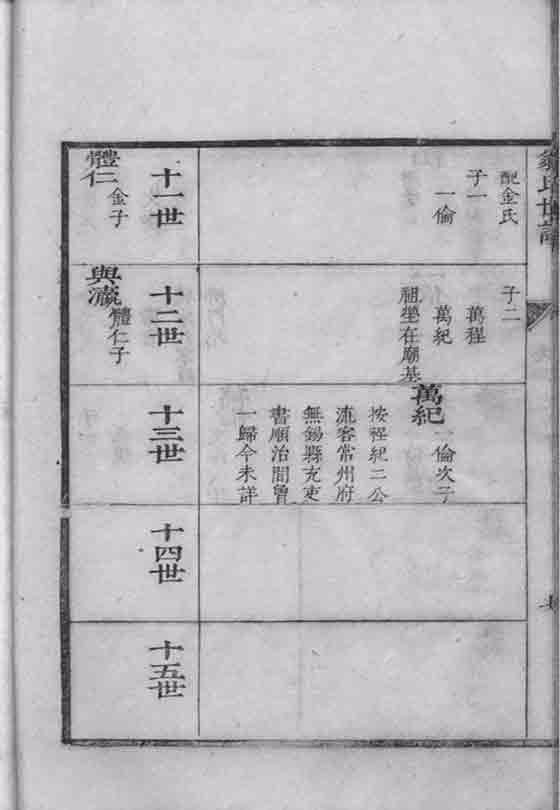 氏世譜
配金氏
子一
一倫
十一世
體仁 金子
子二
萬程
萬紀
祖塋在廟基
十二世
與瀛 體仁子
萬紀 一倫次子
按程紀二公
流客常州府
無錫縣充吏
書順治間曾
一歸今未詳
十三世
十四世
十五世